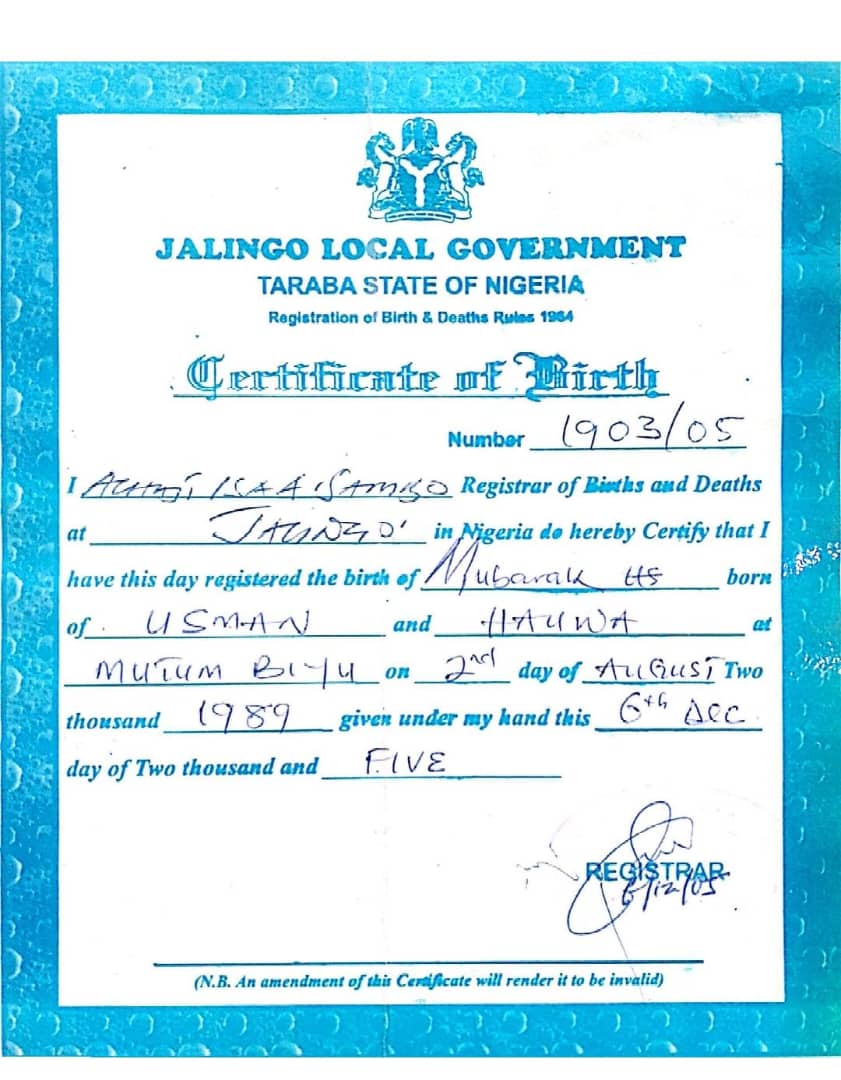 JALINGO LOCAL GOVERNMENT
TARABA STATE OF NIGERIA
Registration of Birth & Deaths Rules 1984
Certificate of Birth
Number 1903/05
I ALHAJI ISAA SAMBO Registrar of Births and Deaths
at JALINGO in Nigeria do hereby Certify that I
have this day registered the birth of Mubarak born
of USMAN and HAUWA at
MUTUM BIYU on 2nd day of AUGUST Two
thousand 1989 given under my hand this 6th Dec
day of Two thousand and FIVE
REGISTRAR
6/12/05
(N.B. An amendment of this Certificate will render it to be invalid)